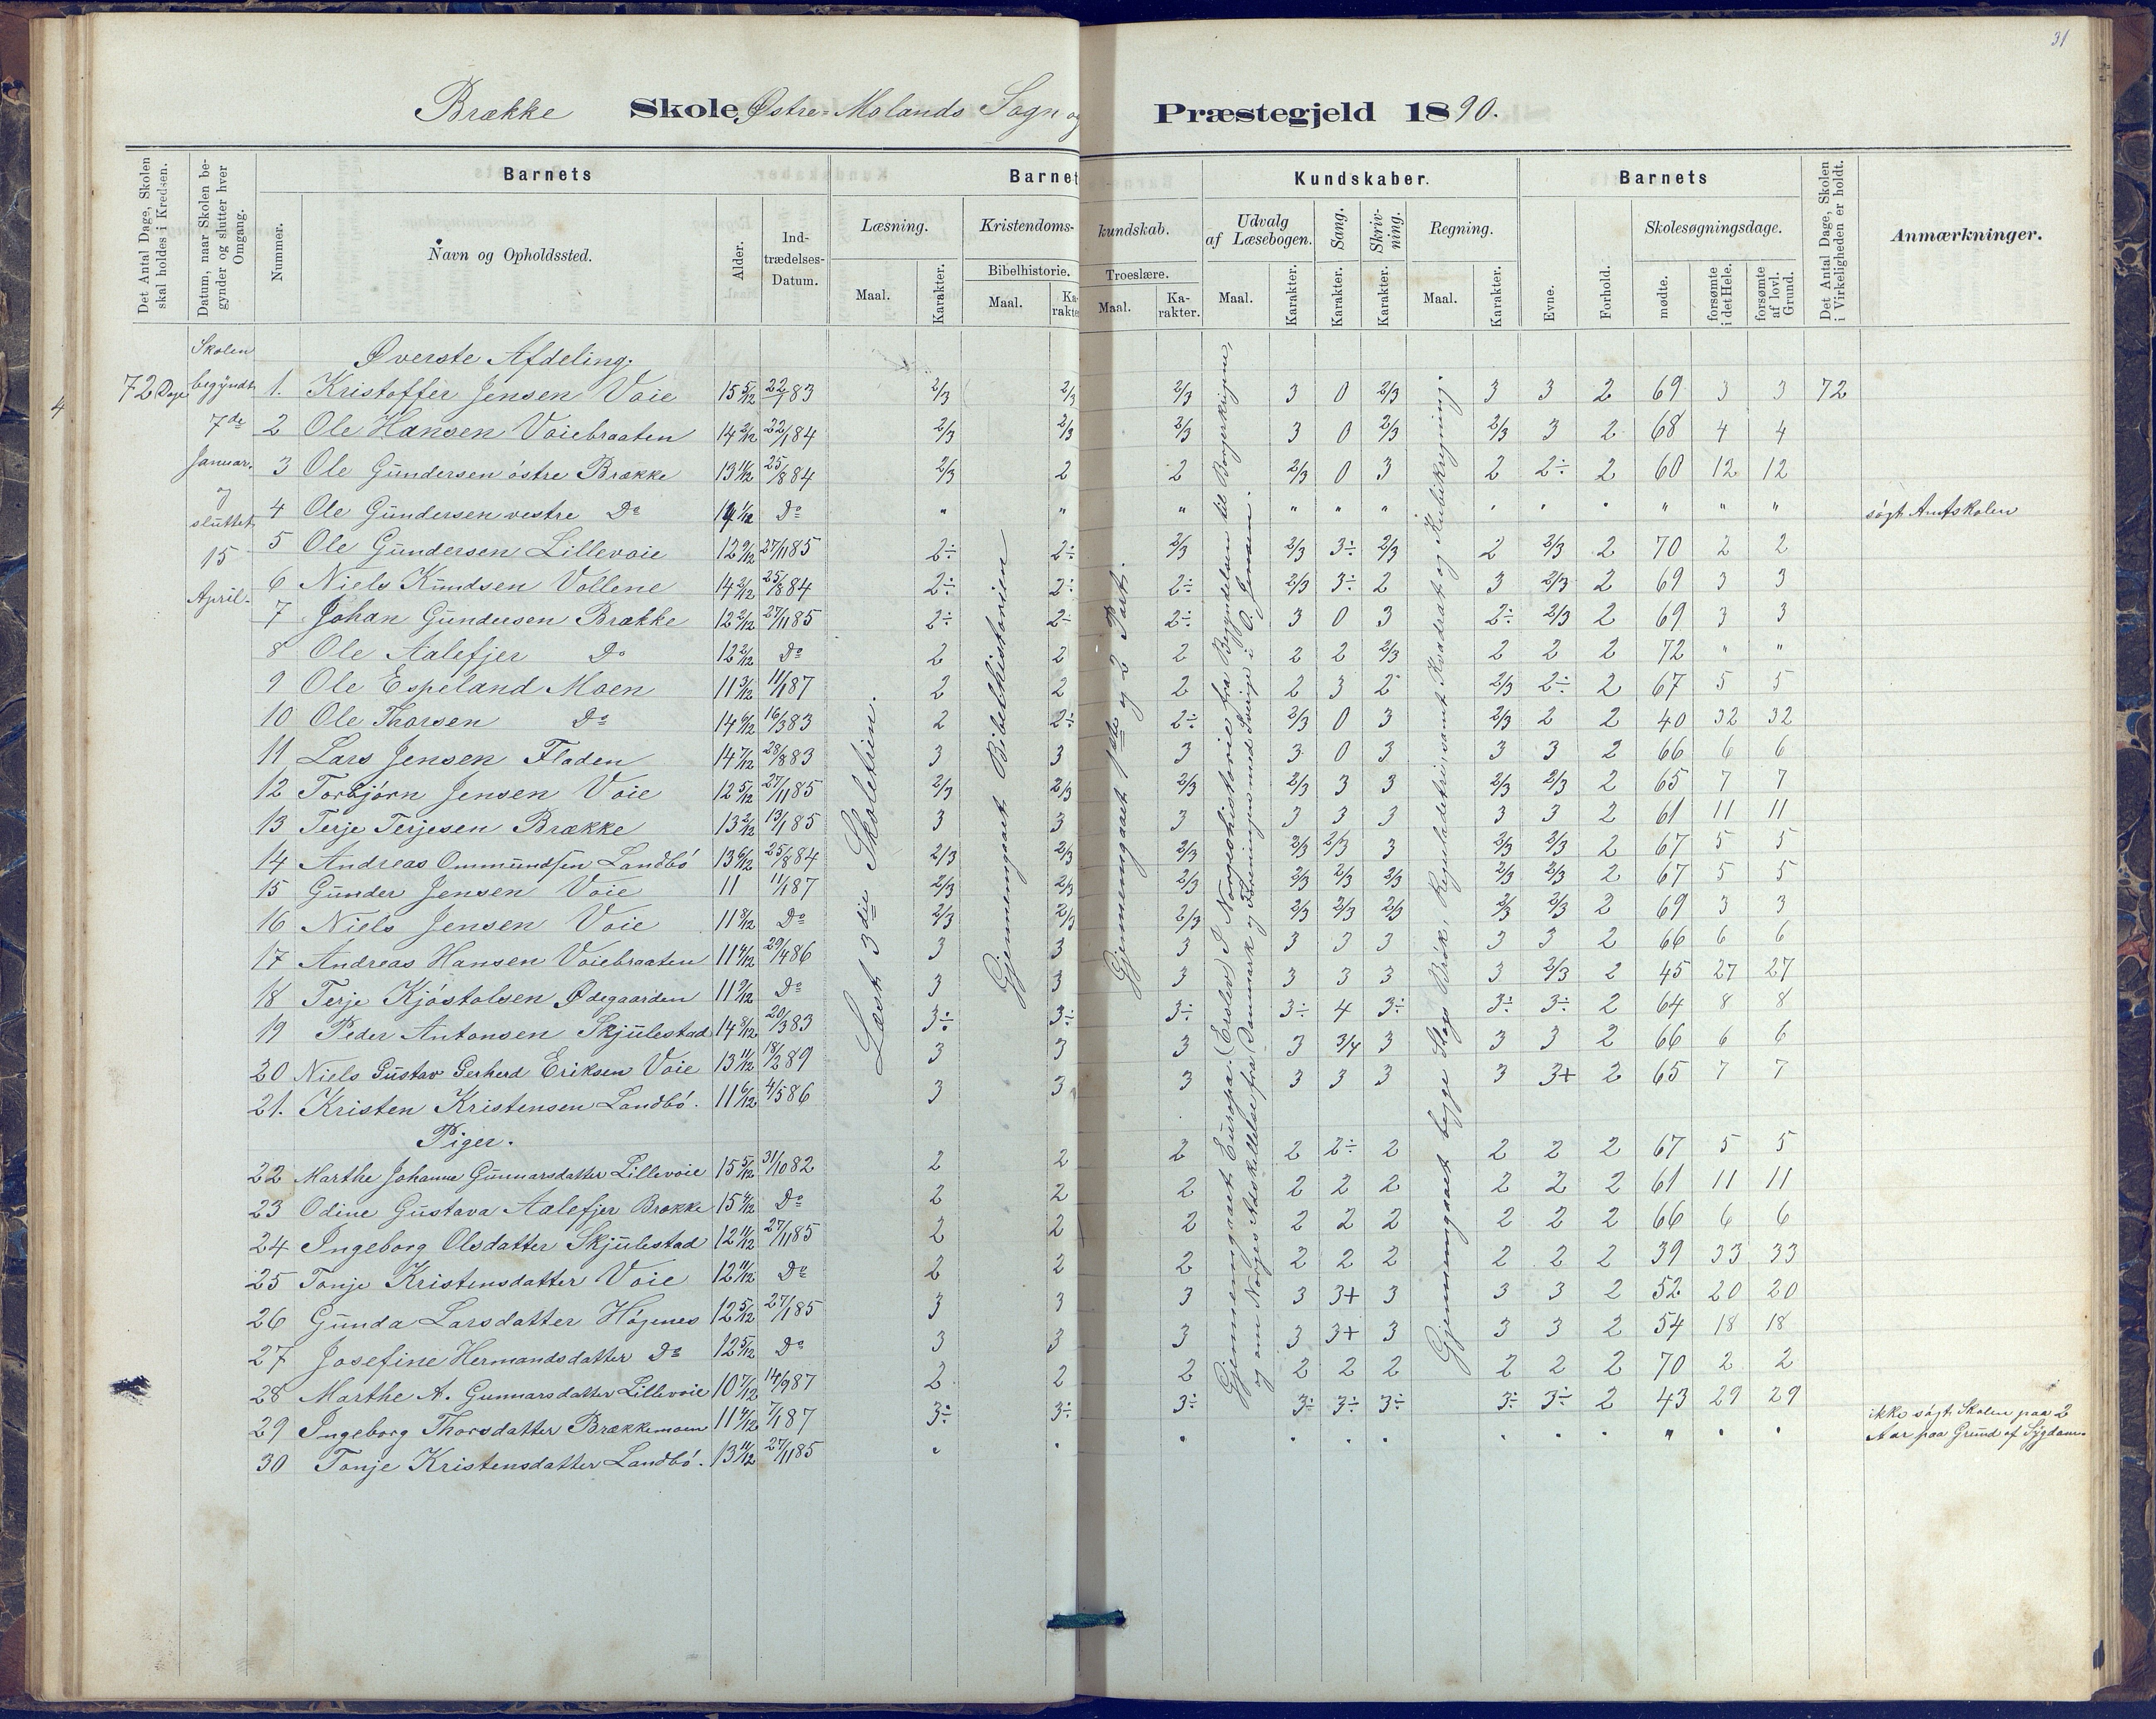 31
Brække Skole, Østre-Molands Sogn og Præstegjeld 1890.
Det Antal Dage, Skolen skal holdes i Kredsen.
Datum, naar Skolen begynder og slutter hver Omgang.
Barnets
Nummer.
Navn og Opholdssted.
Alder.
Indtrædelses-Datum.
Barnets Kundskaber.
Læsning.
Maal.
Karakter.
Kristendomskundskab.
Bibelhistorie.
Maal.
Karakter.
Troeslære.
Maal.
Karakter.
Udvalg af Læsebogen.
Maal.
Karakter.
Sang.
Karakter.
Skrivning.
Karakter.
Regning.
Maal.
Karakter.
Barnets
Evne.
Forhold.
Skolesøgningsdage.
mødte.
forsømte i det Hele.
forsømte af lovl. Grund.
Det Antal Dage, Skolen i Virkeligheden er holdt.
Anmærkninger.
4
72 Dage
Skolen begyndt 7de Januar. og sluttet 15 April.
Øverste Afdeling.
1. Kristoffer Jensen Voie 15 5/12 22/7 83 2/3 2/3 2/3 3 0 2/3 3 3 2 69 3 3 72
2 Ole Hansen Voiebraaten 14 2/12 22/1 84 2/3 2/3 2/3 3 0 2/3 2/3 3 2 68 4 4
3 Ole Gundersen östre Brække 13 11/12 25/8 84 2/3 2 2 2/3 0 3 2 2÷ 2 60 12 12
4 Ole Gundersen vestre Do 14 1/12 Do " " " " " " " " " " " " søgt Amtskolen
5 Ole Gundersen Lillevoie 12 9/12 27/1 85 2÷ 2÷ 2/3 2/3 3÷ 2/3 2 2/3 2 70 2 2
6 Niels Knudsen Vollene 14 2/12 25/8 84 2÷ 2÷ 2÷ 2/3 3÷ 2 3 2/3 2 69 3 3
7 Johan Gundersen Brække 12 2/12 27/11 85 2÷ 2÷ 2÷ 3 0 3 2÷ 2/3 2 69 3 3
8 Ole Aalefjer Do 12 2/12 Do 2 2 2 2 2 2/3 2 2 2 72 " "
9 Ole Espeland Moen 11 3/12 11/1 87 2 2 2 2 3 2 2/3 2÷ 2 67 5 5
10 Ole Thorsen Do 14 6/12 16/3 83 2 2÷ 2÷ 2/3 0 3 2/3 2 2 40 32 32
11 Lars Jensen Fladen 14 7/12 28/8 83 3 3 3 3 0 3 3 3 2 66 6 6
12 Torbjörn Jensen Voie 12 5/12 27/11 85 2/3 2/3 2/3 2/3 3 3 2/3 2/3 2 65 7 7
13 Terje Terjesen Brække 13 2/12 13/1 85 3 3 3 3 3 3 3 3 2 61 11 11
14 Andreas Ommundsen Landbö 13 6/12 25/8 84 2/3 2/3 2/3 2/3 2/3 3 2/3 2/3 2 67 5 5
15 Gunder Jensen Voie 11 11/1 87 2/3 2/3 2/3 2/3 2/3 2/3 2/3 2/3 2 67 5 5
16 Niels Jensen Voie 11 8/12 Do 2/3 2/3 2/3 2/3 2/3 2/3 2/3 2/3 2 69 3 3
17 Andreas Hansen Voiebraaten 11 4/12 29/4 86 3 3 3 3 3 3 3 3 2 66 6 6
18 Terje Kjöstolsen Ødegaarden 11 9/12 Do 3 3 3 3 3 3 3 2/3 2 45 27 27
19 Peder Antonsen Skjulestad 14 8/12 20/3 83 3÷ 3÷ 3÷ 3÷ 4 3÷ 3÷ 3÷ 2 64 8 8
20 Niels Gustav Gerherd Eriksen Voie 13 11/12 18/2 89 3 3 3 3 3/4 3 3 3 2 66 6 6
21. Kristen Kristensen Landbö. 11 6/12 4/5 86 3 3 3 3 3 3 3 3+ 2 65 7 7
Piger.
22 Marthe Johanne Gunnarsdatter Lillevoie 15 5/12 31/10 82 2 2 2 2 2÷ 2 2 2 2 67 5 5
23 Odine Gustava Aalefjer Brække 15 4/12 Do 2 2 2 2 2 2 2 2 2 61 11 11
24 Ingeborg Olsdatter Skjulestad 12 11/12 27/11 85 2 2 2 2 2 2 2 2 2 66 6 6
25 Tonje Kristensdatter Voie 12 11/12 Do 2 2 2 2 2 2 2 2 2 39 33 33
26 Gunda Larsdatter Högenes 12 5/12 27/1 85 3 3 3 3 3+ 3 3 3 2 52 20 20
27 Josefine Hermandsdatter Do 12 5/12 Do 3 3 3 3 3+ 3 3 3 2 54 18 18
28 Marthe A. Gunnarsdatter Lillevoie 10 7/12 14/9 87 2 2 2 2 2 2 2 2 2 70 2 2
29 Ingeborg Thorsdatter Brækkemoen 11 4/12 7/1 87 3÷ 3÷ 3÷ 3÷ 3÷ 3÷ 3÷ 3÷ 2 43 29 29
30 Tonje Kristensdatter Landbö. 13 11/12 27/11 85 " " " " " " " " " " " " ikke søgt Skolen paa 2 Aar paa Grund af Sygdom.
Læst 3die Skoletrin.
Gjennemgaaet Bibelhistorien
Gjennemgaaet 1ste og 2 Part.
Gjennemgaaet Europa. (Erslev) I Norgeshistorie fra Begyndelsen til Borgerkrigene,
og om Norges Adskillelse fra Danmark og Foreningen med Sverige i O. Jensen.
Gjennemgaaet begge Slags Brök, Reguladetri, samt Kvadrat og Kubikregning.